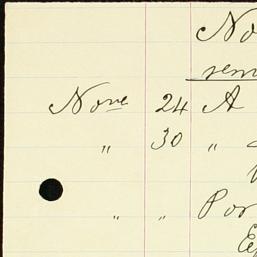 No
rem
Nove 24 A
" 30 "
" " Por